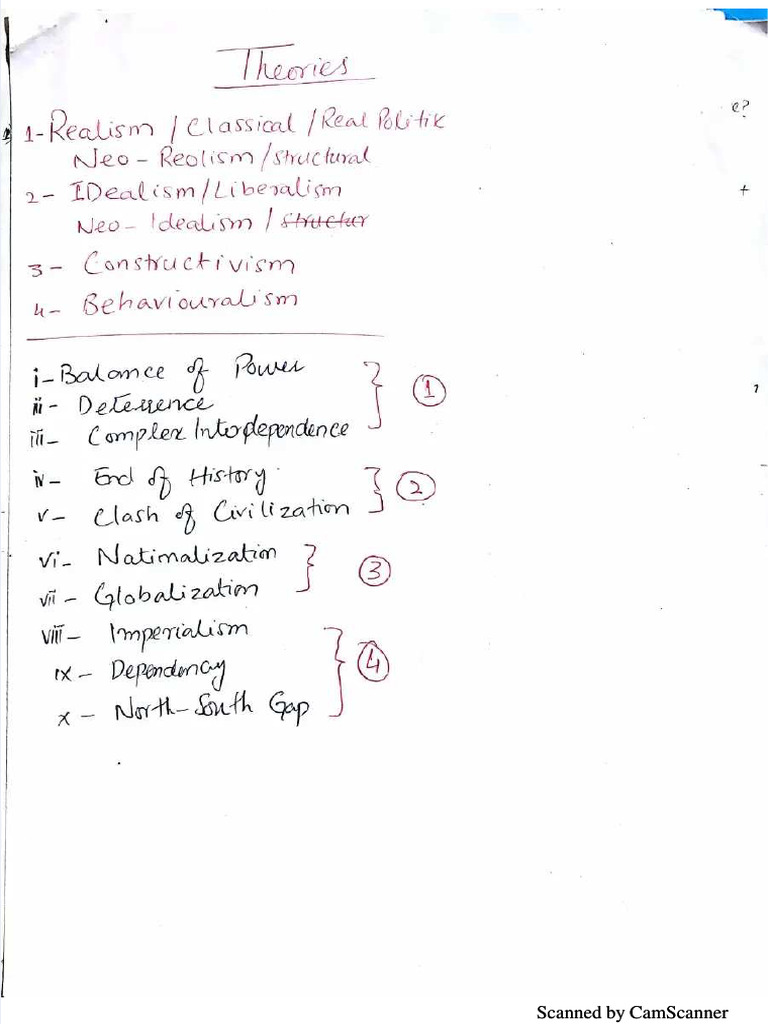 Theories
1-Realism / Classical / Real Politik
Neo - Reolism / structural
2- IDealism / Liberalism
Neo- Idealism / structur
3- Constructivism
4- Behaviouralism
i- Balance of Power
ii - Deterrence
iii- Complex Interdependence
1
iv- End of History
v- Clash of Civilization
2
vi- Nationalization
vii - Globalization
3
viii- Imperialism
ix - Dependency
x - North-South Gap
4
e?
+
Scanned by CamScanner